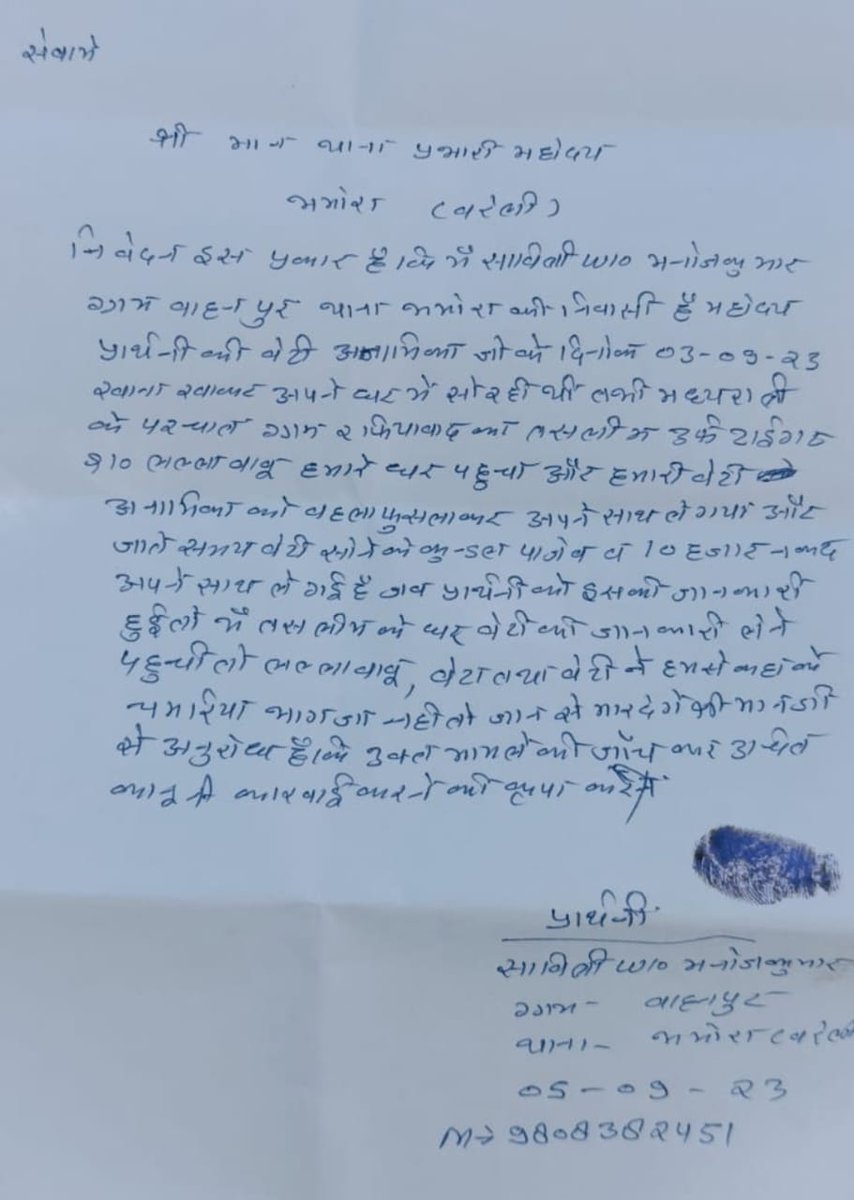 सेवामे
श्री मान थाना प्रभारी महोदय
भमोरा (बरेली)
निवेदन इस प्रकार है कि मैं सावित्री W/O मनोजकुमार
ग्राम वाहनपुर थाना भमोरा की निवासी हूँ महोदय
प्रार्थनी की बेटी अनामिका जो के दिनांक 03-09-23
खाना खाकर अपने घर में सो रही थी तभी मध्यरात्री
के पश्चात ग्राम रफियाबाद का तसलीम उर्फ टाईगर
S/O लल्लाबाबू हमारे घर पहुचा और हमारी बेटी
अनामिका को बहला फुसलाकर अपने साथ ले गया और
जाते समय बेटी सोने के कुन्डल पाजेब व 10 हजार नकद
अपने साथ ले गई है जब प्रार्थनी को इसकी जानकारी
हुई तो मैं तसलीम के घर बेटी की जानकारी लेने
पहुची तो लल्लाबाबू, बेटा तथा बेटी ने हमसे कहा के
चमरिया भाग जा नही तो जान से मार देंगे श्री मान जी
से अनुरोध है कि उक्त मामले की जाँच कर उचित
कानूनी कारवाई करने की कृपा करें
प्रार्थनी
सावित्री W/O मनोजकुमार
ग्राम- वाहनपुर
थाना- भमोरा (बरेली
05-09-23
M→ 9808382451